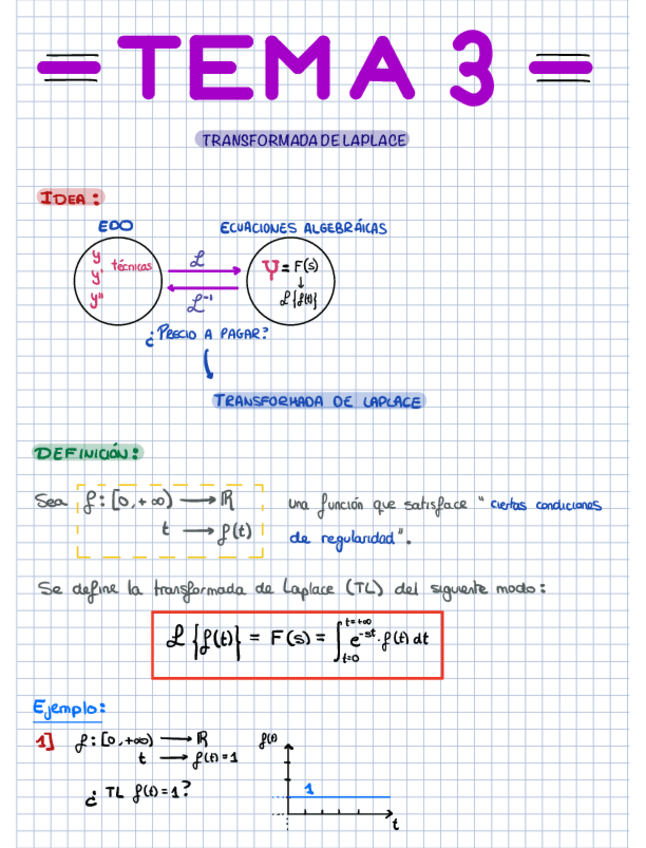 = TEMA 3 =
TRANSFORMADA DE LAPLACE
IDEA:
EDO
ECUACIONES ALGEBRÁICAS
y
y' técnicas
y''
ℒ
ℒ⁻¹
Y = F(s)
↓
ℒ{f(t)}
¿PRECIO A PAGAR?
TRANSFORMADA DE LAPLACE
DEFINICIÓN:
Sea f: [0,+∞) → ℝ una función que satisface "ciertas condiciones
t → f(t) de regularidad".
Se define la transformada de Laplace (TL) del siguiente modo:
ℒ{f(t)} = F(s) = ∫_{t=0}^{t=+∞} e^{-st}·f(t) dt
Ejemplo:
1] f: [0,+∞) → ℝ
t → f(t)=1
¿TL f(t)=1?
f(t)
1
t